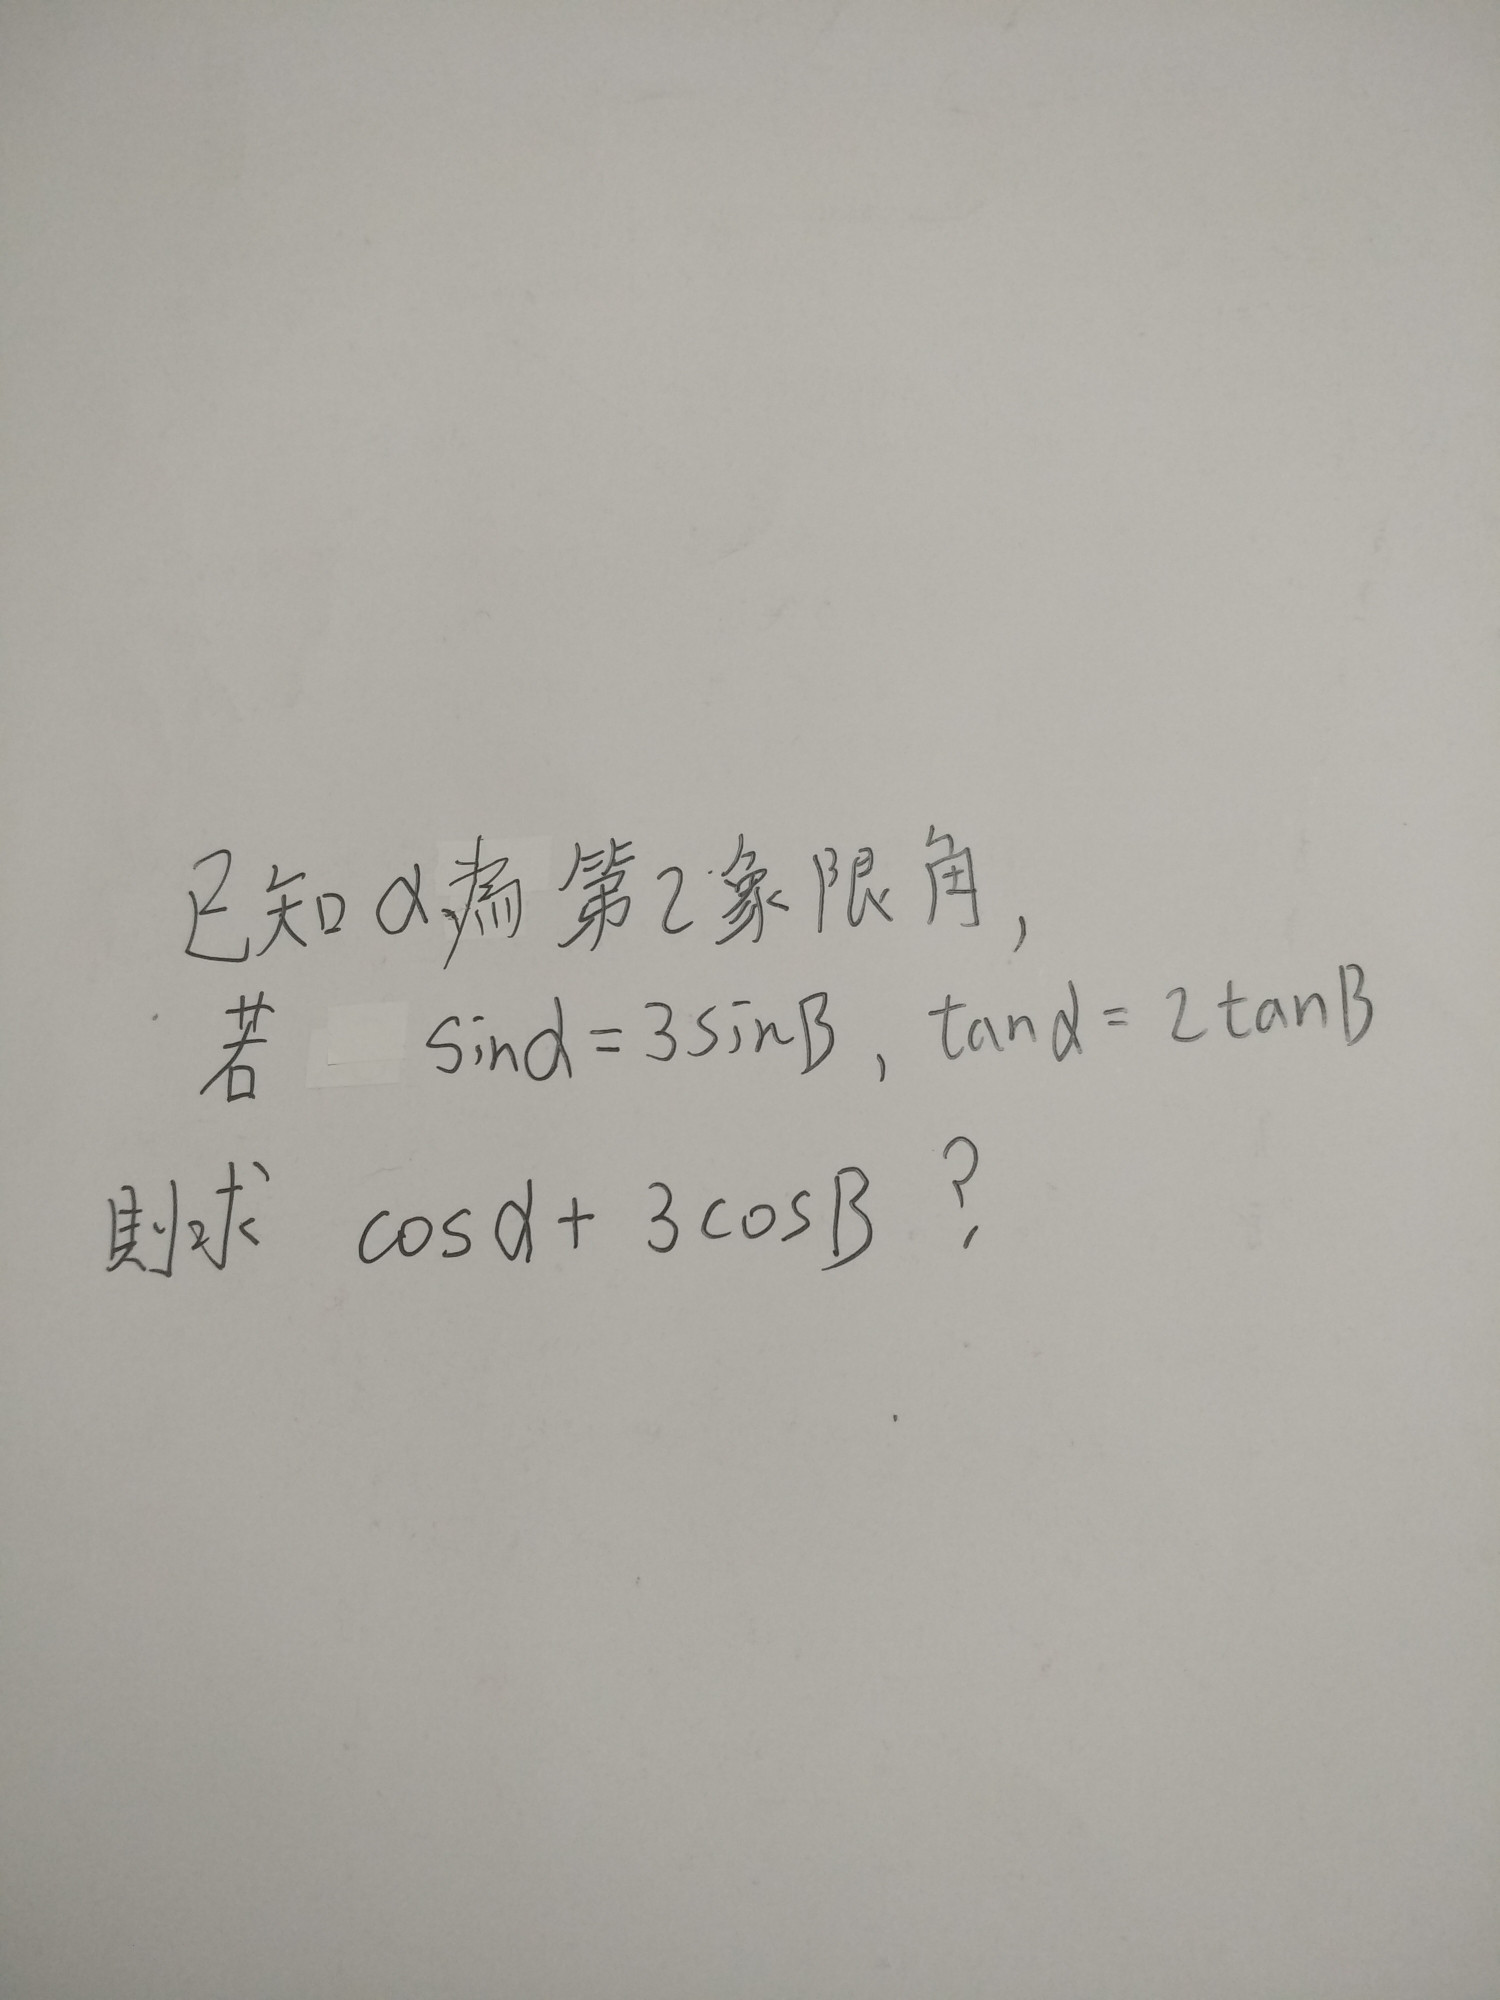 已知α為第2象限角,
若 sinα=3sinβ, tanα=2tanβ
則求 cosα+3cosβ?